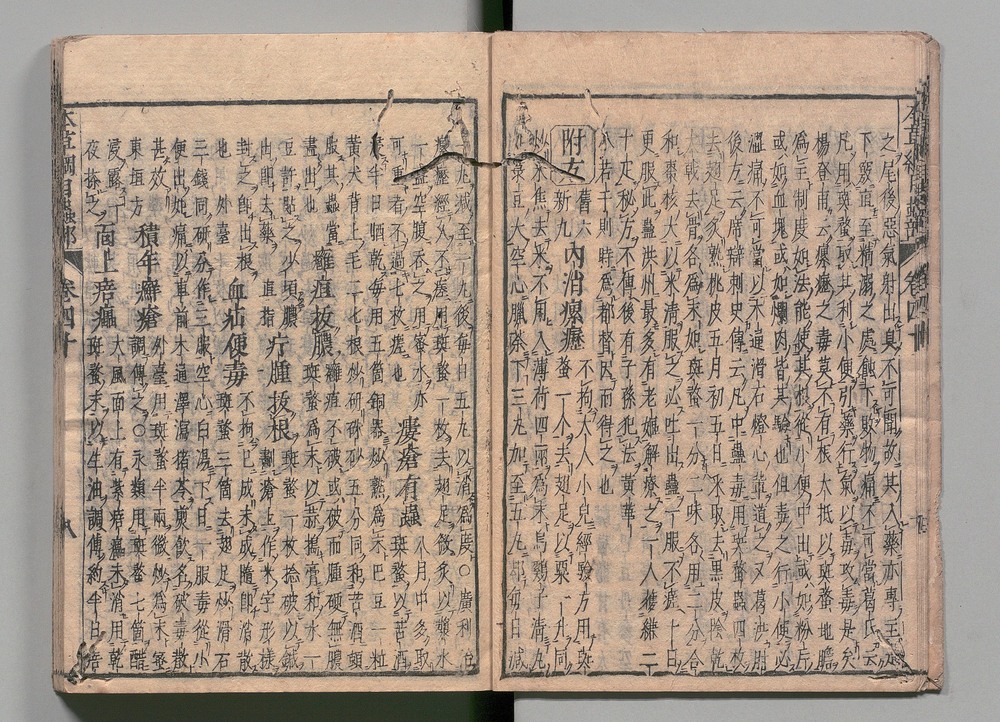 之尾後惡氣射出臭不可聞故其入藥亦專主走
下竅直至精溺之處蝕下敗物痛不可當葛氏云
凡用斑蝥取其利小便引藥行氣以毒攻毒是矣
楊登甫云瘰癧之毒莫不有根大抵以斑蝥地膽
為主制度如法能使其根從小便中出或如粉片
或如血塊或如爛肉皆其驗也但毒之行小便必
澀痛不可當以木通滑石燈心輩導之又葛洪肘
後方云席辯刺史傳云凡中蠱毒用斑蝥蟲四枚
去翅足炙熟桃皮五月初五日采取去黑皮陰乾
大戟去骨各為末如斑蝥一分二味各用二分合
和棗核大以米清服之必吐出蠱一服不瘥十日
更服此蠱洪州最多有老嫗解療之一人獲縑二
十疋秘方不傳後有子孫犯法黃華
公若于則時為都督因而得之也
附方 舊六 新九 內治瘰癧 不拘大人小兒經驗方用斑
蝥一人去翅足以粟一升同
炒米焦去米不用入薄荷四兩為末烏雞子清丸
丸綠豆大空心臘茶下三丸加至五丸却每日減
一丸減至一丸後每日五丸以消為度○廣利治
瘰癧經久不瘥用斑蝥一枚去翅足微炙以漿水
一盞空腹吞之用蜜水亦
可重者不過七枚瘥也 瘻瘡有蟲 八月中多取
斑蝥以苦酒
浸半日晒乾每用五箇銅器炒熟為末巴豆一粒
黃犬背上毛二七根炒研硃砂五分同和苦酒頓
服其蟲當
盡出也 癰疽拔膿 癰疽不破或破而腫硬無膿
斑蝥為末以蒜搗膏和水一
豆許貼之少頃膿
出即去藥 直指 疔腫拔根 斑蝥一枚捻破以鍼
劃瘡上作米字形樣
封之即出根
也 外臺 血疝便毒 不拘已成未成隨即消散
斑蝥三箇去翅足炒滑石
三錢同研分作三服空心白湯下日一服毒從小
便出如痛以車前木通澤瀉猪苓煎飲名破毒散
甚效
東垣方 積年癬瘡 外臺用斑蝥半兩微炒為末蜜
調傅之○永類用斑蝥七箇醋
浸露一
夜搽之 面上痦癗 大風面上有紫痦癗未消用乾
斑蝥末以生油調傅約半日痦
本草綱目蟲部 卷四十 八